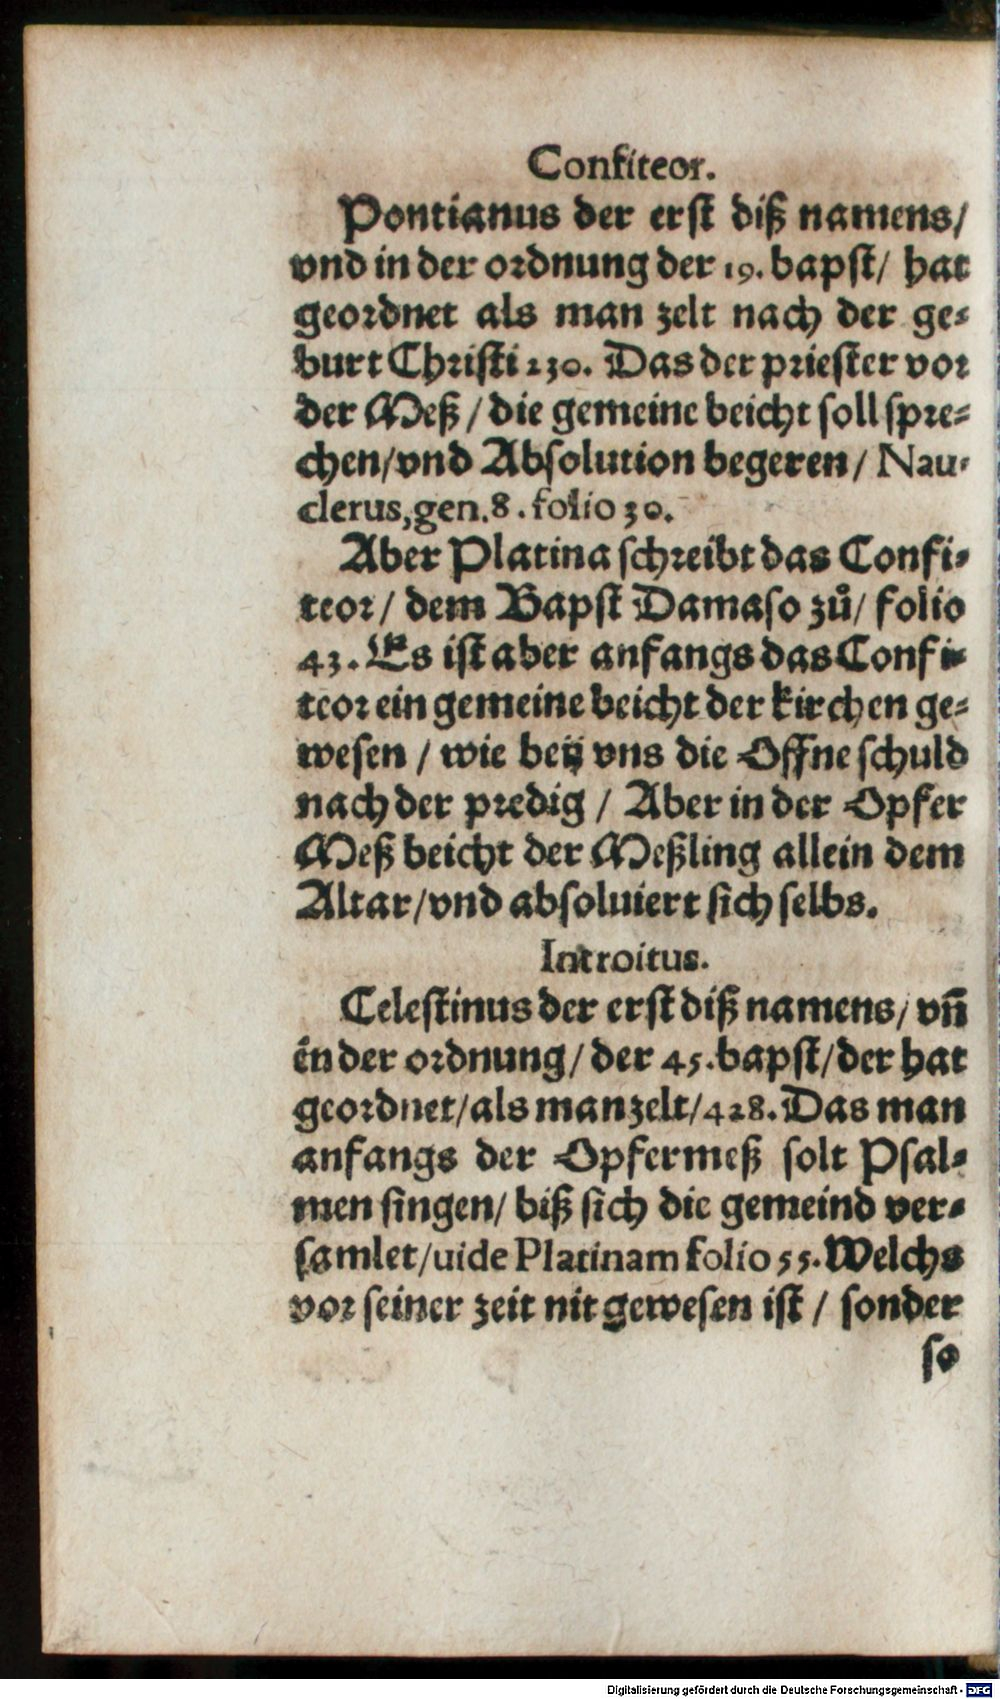 Confiteor.
Pontianus der erst diß namens/
vnd in der ordnung der 19. bapst/ hat
geordnet als man zelt nach der ge⸗
burt Christi 230. Das der priester vor
der Meß / die gemeine beicht soll spre⸗
chen/vnd Absolution begeren/ Nau⸗
clerus,gen.8. folio 30.
Aber Platina schreibt das Confi⸗
teor/ dem Bapst Damaso zuͦ/ folio
43. Es ist aber anfangs das Confi⸗
teor ein gemeine beicht der kirchen ge⸗
wesen / wie beÿ vns die Offne schuld
nach der predig / Aber in der Opfer
Meß beicht der Meßling allein dem
Altar/vnd absoluiert sich selbs.
Introitus.
Celestinus der erst diß namens/ vñ
én der ordnung/ der 45. bapst/der hat
geordnet/als man zelt/428. Das man
anfangs der Opfermeß solt Psal⸗
men singen/ biß sich die gemeind ver⸗
samlet/uide Platinam folio 55. Welchs
vor seiner zeit nit gewesen ist / sonder
so
Digitalisierung gefördert durch die Deutsche Forschungsgemeinschaft - DFG